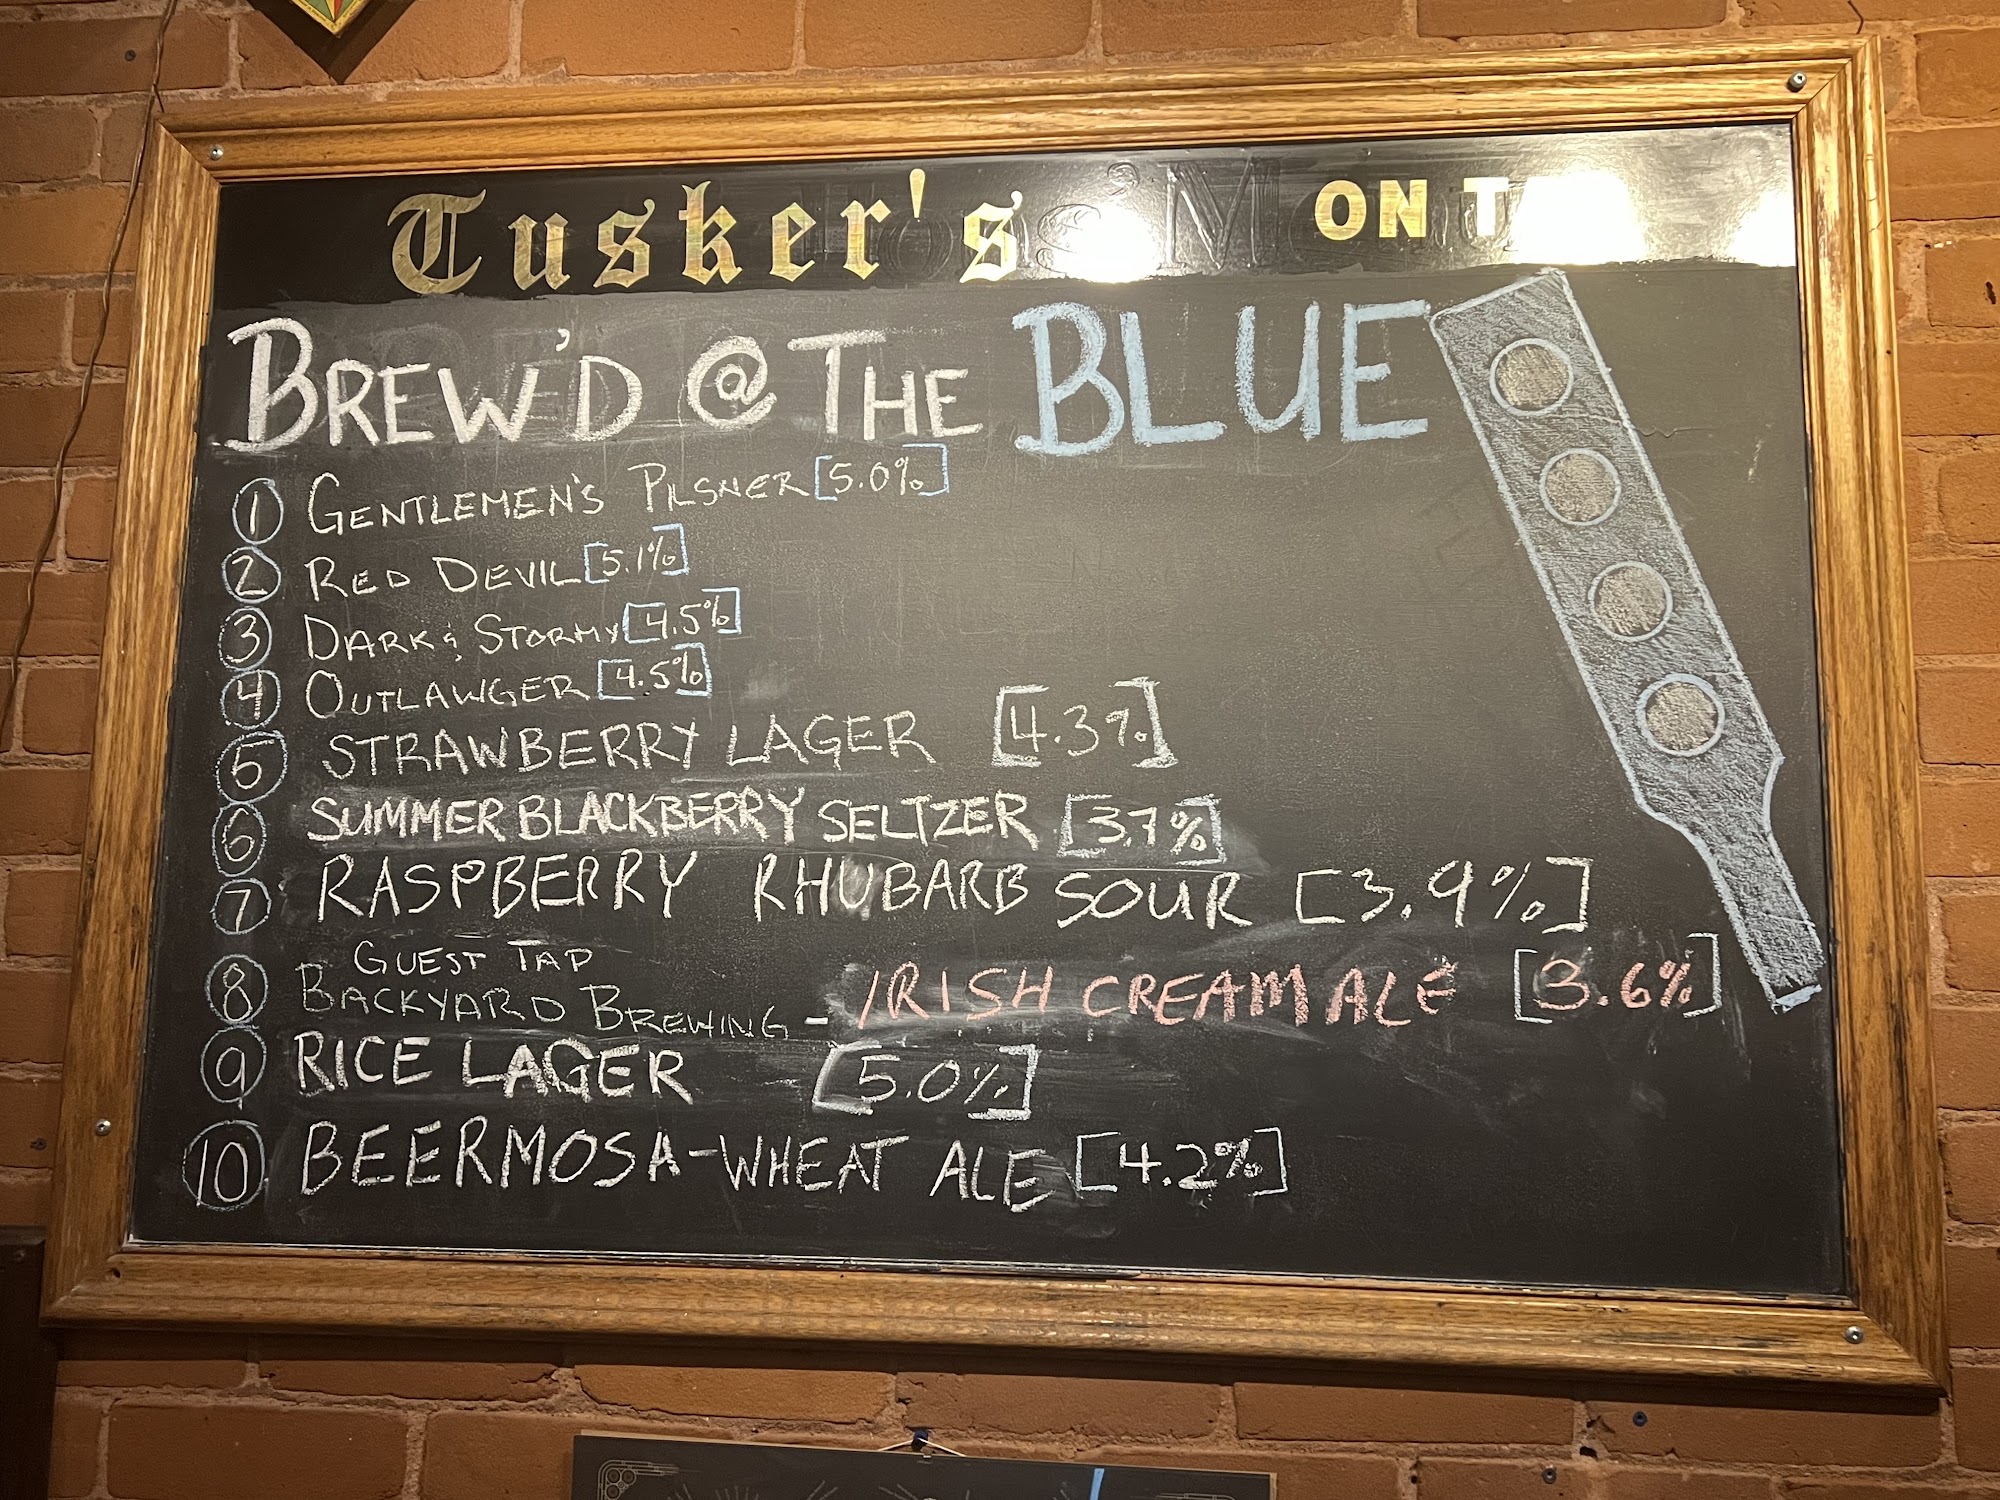 Tusker's ON T
BREW'D @ THE BLUE
1 GENTLEMEN'S PILSNER [5.0%]
2 RED DEVIL [5.1%]
3 DARK & STORMY [4.5%]
4 OUTLAWGER [4.5%]
5 STRAWBERRY LAGER [4.3%]
6 SUMMER BLACKBERRY SELTZER [3.7%]
7 RASPBERRY RHUBARB SOUR [3.9%]
GUEST TAP
8 BACKYARD BREWING - IRISH CREAM ALE [3.6%]
9 RICE LAGER [5.0%]
10 BEERMOSA-WHEAT ALE [4.2%]